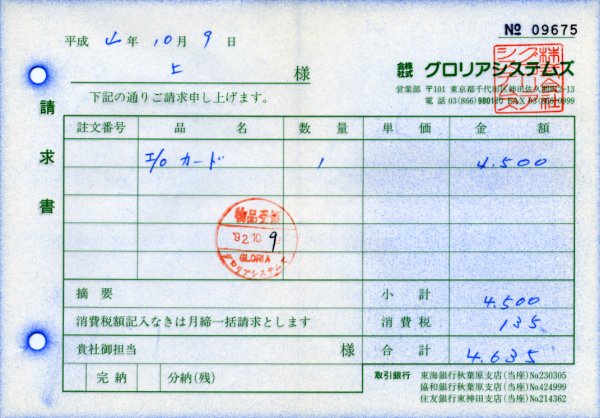 № 09675
平成 4年 10月 9日
上 様
株式会社 グロリアシステムズ
下記の通りご請求申し上げます。
営業部 〒101 東京都千代田区神田佐久間町
電話 03(866)
請求書
註文番号 品名 数量 単価 金額
I/O カード 1 4.500
物品受領
'92.10.9
GLORIA
グロリアシステムズ
摘要 小計 4.500
消費税額記入なきは月締一括請求とします 消費税 135
貴社御担当 様 合計 4.635
完納 分納(残)
取引銀行 東海銀行秋葉原支店(当座)No230305
協和銀行秋葉原支店(当座)No424999
住友銀行東神田支店(当座)No214362